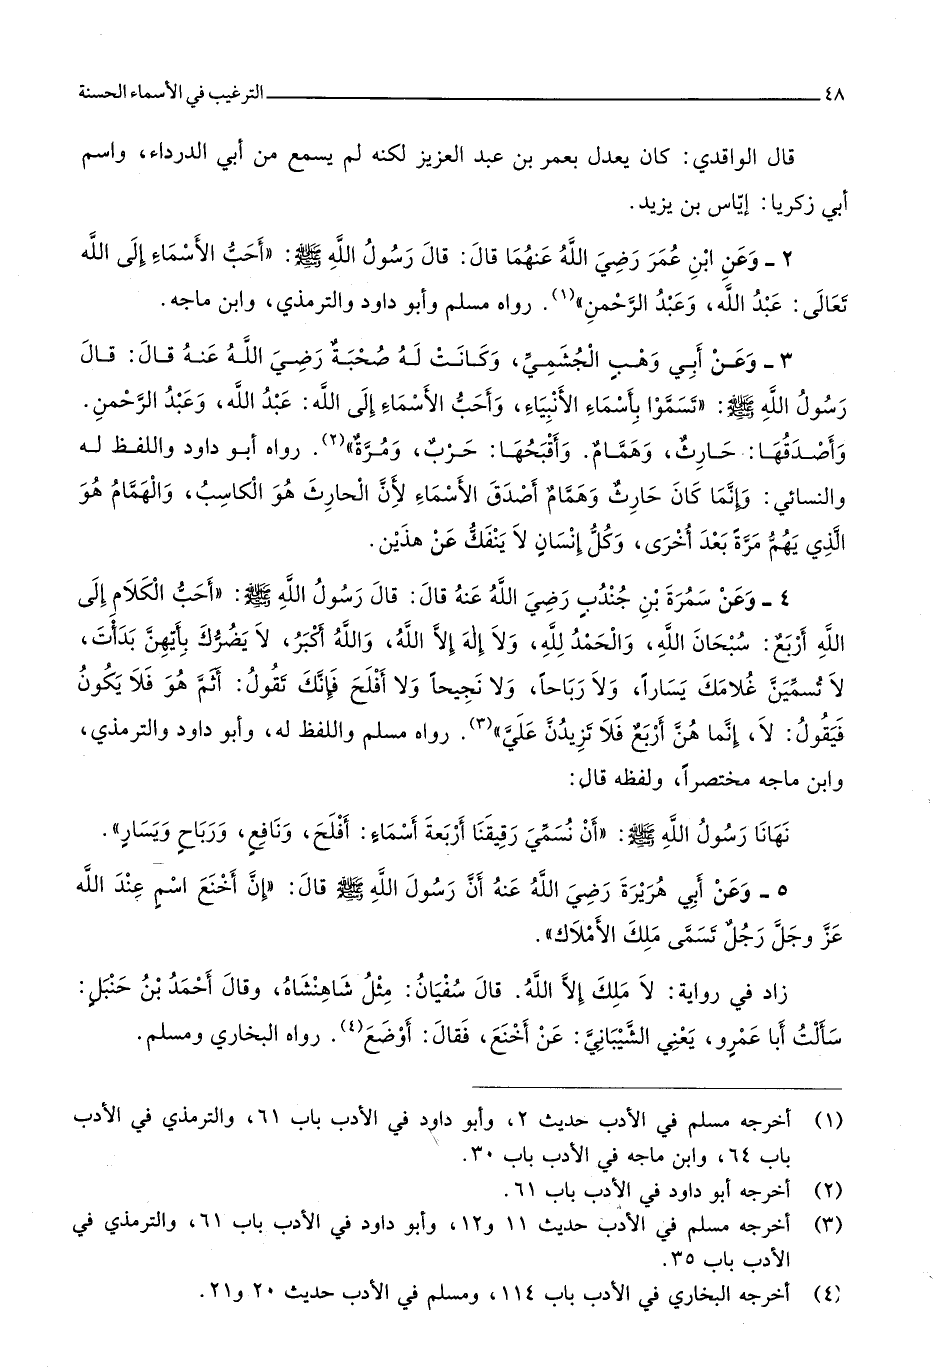 ٤٨ ــــــ الترغيب في الأسماء الحسنة
قال الواقدي: كان يعدل بعمر بن عبد العزيز لكنه لم يسمع من أبي الدرداء، واسم
أبي زكريا: إيّاس بن يزيد.
٢ ـ وَعَنِ ابْنِ عُمَرَ رَضِيَ اللَّهُ عَنهُمَا قالَ: قالَ رَسُولُ اللَّهِ ﷺ: «أَحَبُّ الأَسْمَاءِ إلَى اللَّه
تَعَالَى: عَبْدُ اللَّه، وَعَبْدُ الرَّحْمنِ»(١). رواه مسلم وأبو داود والترمذي، وابن ماجه.
٣ ـ وَعَـنْ أَبـي وَهْـبٍ الْجُشَمِـيِّ، وَكَـانَـتْ لَـهُ صُحْبَـةٌ رَضِـيَ اللَّـهُ عَنـهُ قـالَ: قـالَ
رَسُولُ اللَّهِ ﷺ: «تَسَمَّوْا بِأَسْمَاءِ الأَنْبِيَاءِ، وَأَحَبُّ الأَسْمَاءِ إلَى اللَّه: عَبْدُ اللَّه، وَعَبْدُ الرَّحْمنِ.
وَأَصْـدَقُهَـا: حَـارِثٌ، وَهَمَّامٌ. وَأَقْبَحُهَـا: حَـرْبٌ، وَمُـرَّةٌ»(٢). رواه أبـو داود واللفـظ لـه
والنسائي: وَإنَّمَا كَانَ حَارِثٌ وَهَمَّامٌ أَصْدَقَ الأَسْمَاءِ لأَنَّ الْحارِثَ هُوَ الْكاسِبُ، وَالْهَمَّامُ هُوَ
الَّذِي يَهُمُّ مَرَّةً بَعْدَ أُخْرَى، وَكُلُّ إنْسَانٍ لاَ يَنْفَكُّ عَنْ هذَيْنِ.
٤ ـ وَعَنْ سَمُرَةَ بْنِ جُنْدُبٍ رَضِيَ اللَّهُ عَنهُ قالَ: قالَ رَسُولُ اللَّهِ ﷺ: «أَحَبُّ الْكَلاَمِ إلَى
اللَّهِ أَرْبَعٌ: سُبْحَانَ اللَّهِ، وَالْحَمْدُ لِلَّهِ، وَلاَ إلهَ إلاَّ اللَّهُ، وَاللَّهُ أَكْبَرُ، لاَ يَضُرُّكَ بِأَيِّهِنَّ بَدَأْتَ،
لاَ تُسمِّيَنَّ غُلاَمَكَ يَسَاراً، وَلاَ رَبَاحاً، وَلا نَجِيحاً وَلا أَفْلَحَ فَإنَّكَ تَقُولُ: أَثَمَّ هُوَ فَلاَ يَكُونُ
فَيَقُولُ: لاَ، إنَّما هُنَّ أَرْبَعٌ فَلاَ تَزِيدُنَّ عَلَيَّ»(٣). رواه مسلم واللفظ له، وأبو داود والترمذي،
وابن ماجه مختصراً، ولفظه قال:
نَهَانَا رَسُولُ اللَّهِ ﷺ: «أَنْ نُسَمِّيَ رَقِيقَنَا أَرْبَعةَ أَسْمَاءٍ: أَفْلَحَ، وَنَافِعٍ، وَرَبَاحٍ وَيَسَارٍ».
٥ ـ وَعَنْ أَبِي هُرَيْرَةَ رَضِيَ اللَّهُ عَنهُ أَنَّ رَسُولَ اللَّهِ ﷺ قالَ: «إنَّ أَخْنَعَ اسْمٍ عِنْدَ اللَّه
عَزَّ وجَلَّ رَجُلٌ تَسَمَّى مَلِكَ الأَمْلاَكِ».
زاد في رواية: لاَ مَلِكَ إلاَّ اللَّهُ. قالَ سُفْيَانُ: مِثْلُ شَاهِنْشَاهُ، وقالَ أَحْمَدُ بْنُ حَنْبَلٍ:
سَأَلْتُ أَبا عَمْرٍو، يَعْنِي الشَّيْبَانِيَّ: عَنْ أَخْنَعَ، فَقالَ: أَوْضَعَ(٤). رواه البخاري ومسلم.
(١) أخرجه مسلم في الأدب حديث ٢، وأبو داود في الأدب باب ٦١، والترمذي في الأدب
باب ٦٤، وابن ماجه في الأدب باب ٣٠.
(٢) أخرجه أبو داود في الأدب باب ٦١.
(٣) أخرجه مسلم في الأدب حديث ١١ و١٢، وأبو داود في الأدب باب ٦١، والترمذي في
الأدب باب ٣٥.
(٤) أخرجه البخاري في الأدب باب ١١٤، ومسلم في الأدب حديث ٢٠ و٢١.